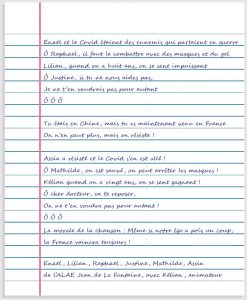 Enaël et le Covid étaient des ennemis qui partaient en guerre
Ô Raphael, il faut le combattre avec des masques et du gel
Lilian, quand on a huit ans, on se sent impuissant
Ô Justine, si tu ne nous aides pas,
Je ne t'en voudrais pas pour autant
Ô Ô Ô
Tu étais en Chine, mais tu es maintenant venu en France
On n'en peut plus, mais on résiste !
Assia a résisté et le Covid s'en est allé !
Ô Mathilde, on est sauvé, on peut arrêter les masques !
Kélian quand on a vingt ans, on se sent gagnant !
Ô cher docteur, va te reposer,
On ne t'en voudra pas pour autant !
Ô Ô Ô
La morale de la chanson : Même si notre égo a pris un coup,
la France vaincra toujours !
Enaël, Lilian, Raphael, Justine, Mathilde, Assia
de l'ALAE Jean de La Fontaine, avec Kélian, animateur